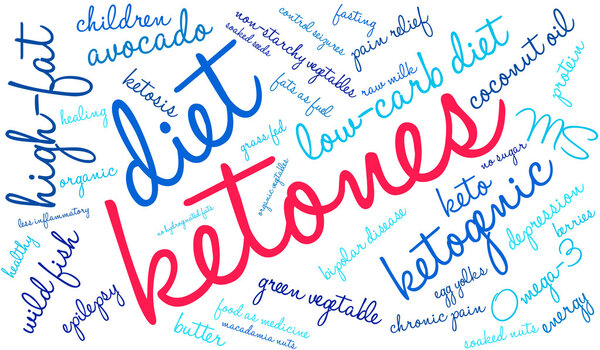 children
avocado
high-fat
soaked seeds
non-starchy vegtables
control seizures
fasting
pain relief
ketosis
diet
fats as fuel
raw milk
low-carb diet
coconut oil
protein
healing
organic
grass fed
ketones
MS
less inflammatory
no hydroginated fats
organic vegtables
no sugar
keto
ketogenic
depression
berries
healthy
wild fish
epilepsy
bipolar disease
green vegetable
egg yolks
chronic pain
Omega-3
energy
butter
food as medicine
macadamia nuts
soaked nuts